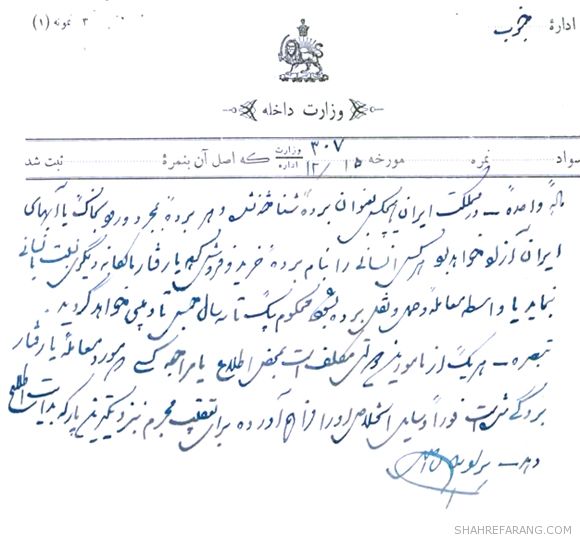 ادارۀ جنوب
۳ نمونه (۱)
وزارت داخله
سواد نمره مورخه ۱۵/۱۲/۳۰۷ وزارت اداره که اصل آن بنمرۀ ثبت شد
مادۀ واحده – در مملکت ایران هیچکس بعنوان برده شناخته نشده و هر برده بمجرد ورود بخاک یا آبهای
ایران آزاد خواهد بود هر کس انسانی را بنام برده خرید و فروش کرده یا رفتار مالکانه دیگری نسبت بانسانی
بنماید یا واسطه معامله و حمل و نقل برده بشود محکوم بیک تا سه سال حبس تأدیبی خواهد گردید.
تبصره – هر یک از مامورین دولتی مکلف است بمحض اطلاع یا مراجعه کسی که مورد معامله یا رفتار
بردگی شده است فوراً وسایل استخلاص او را فراهم آورده برای تعقیب مجرم نیز به نزدیکترین پارکه بدایت اطلاع
دهد –
SHAHREFARANG.COM